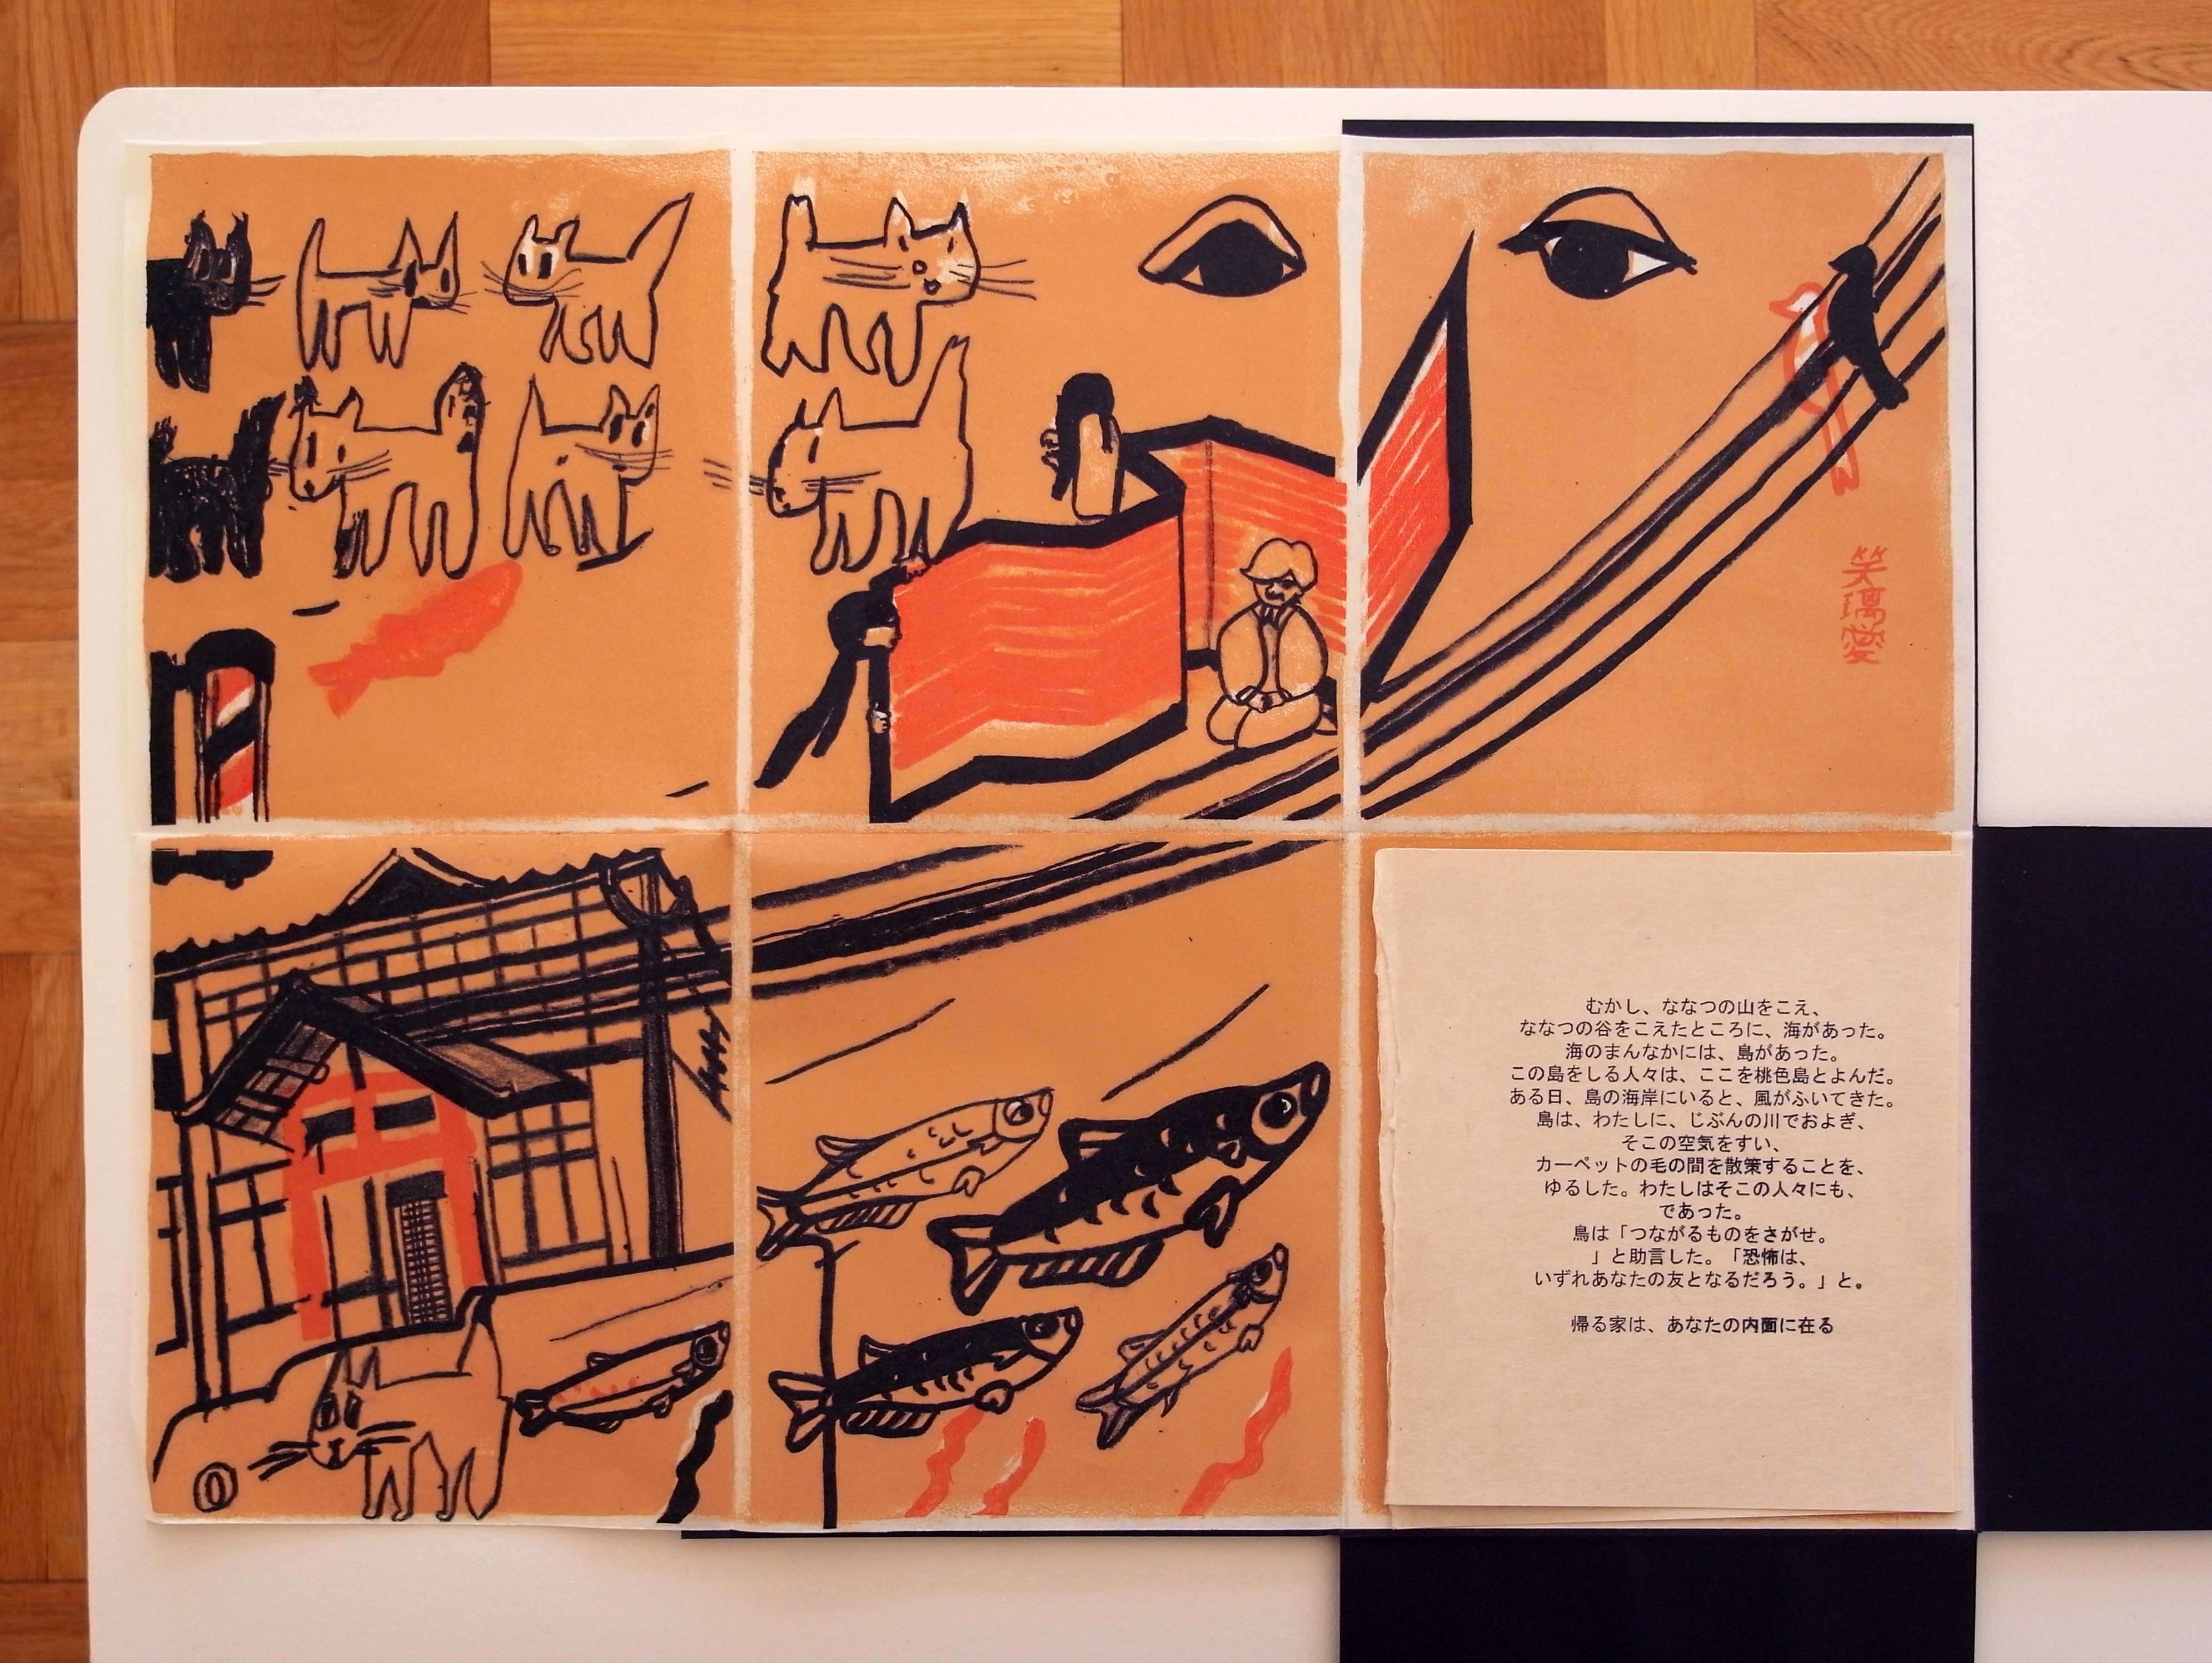 笑璃愛
むかし、ななつの山をこえ、
ななつの谷をこえたところに、海があった。
海のまんなかには、島があった。
この島をしる人々は、ここを桃色島とよんだ。
ある日、島の海岸にいると、風がふいてきた。
島は、わたしに、じぶんの川でおよぎ、
そこの空気をすい、
カーペットの毛の間を散策することを、
ゆるした。わたしはそこの人々にも、
であった。
鳥は「つながるものをさがせ。
」と助言した。「恐怖は、
いずれあなたの友となるだろう。」と。
帰る家は、あなたの内面に在る